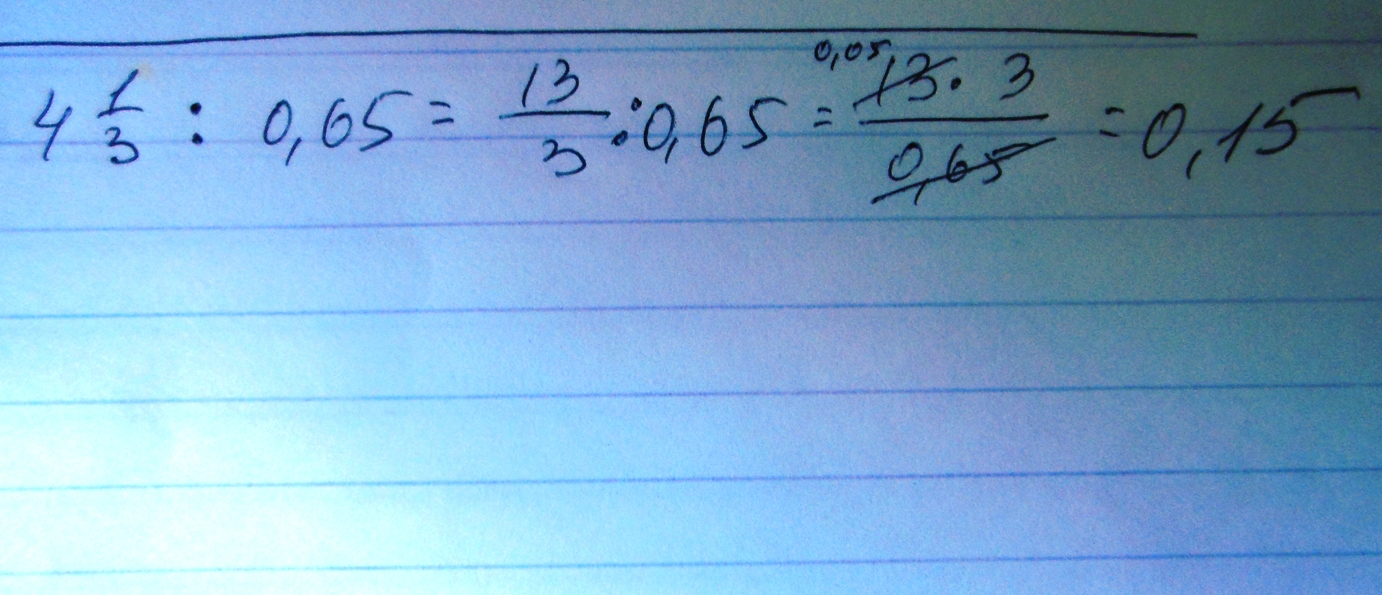 4 1/3 : 0,65 = 13/3 : 0,65 = 0,05 13 · 3 / 0,65 = 0,15